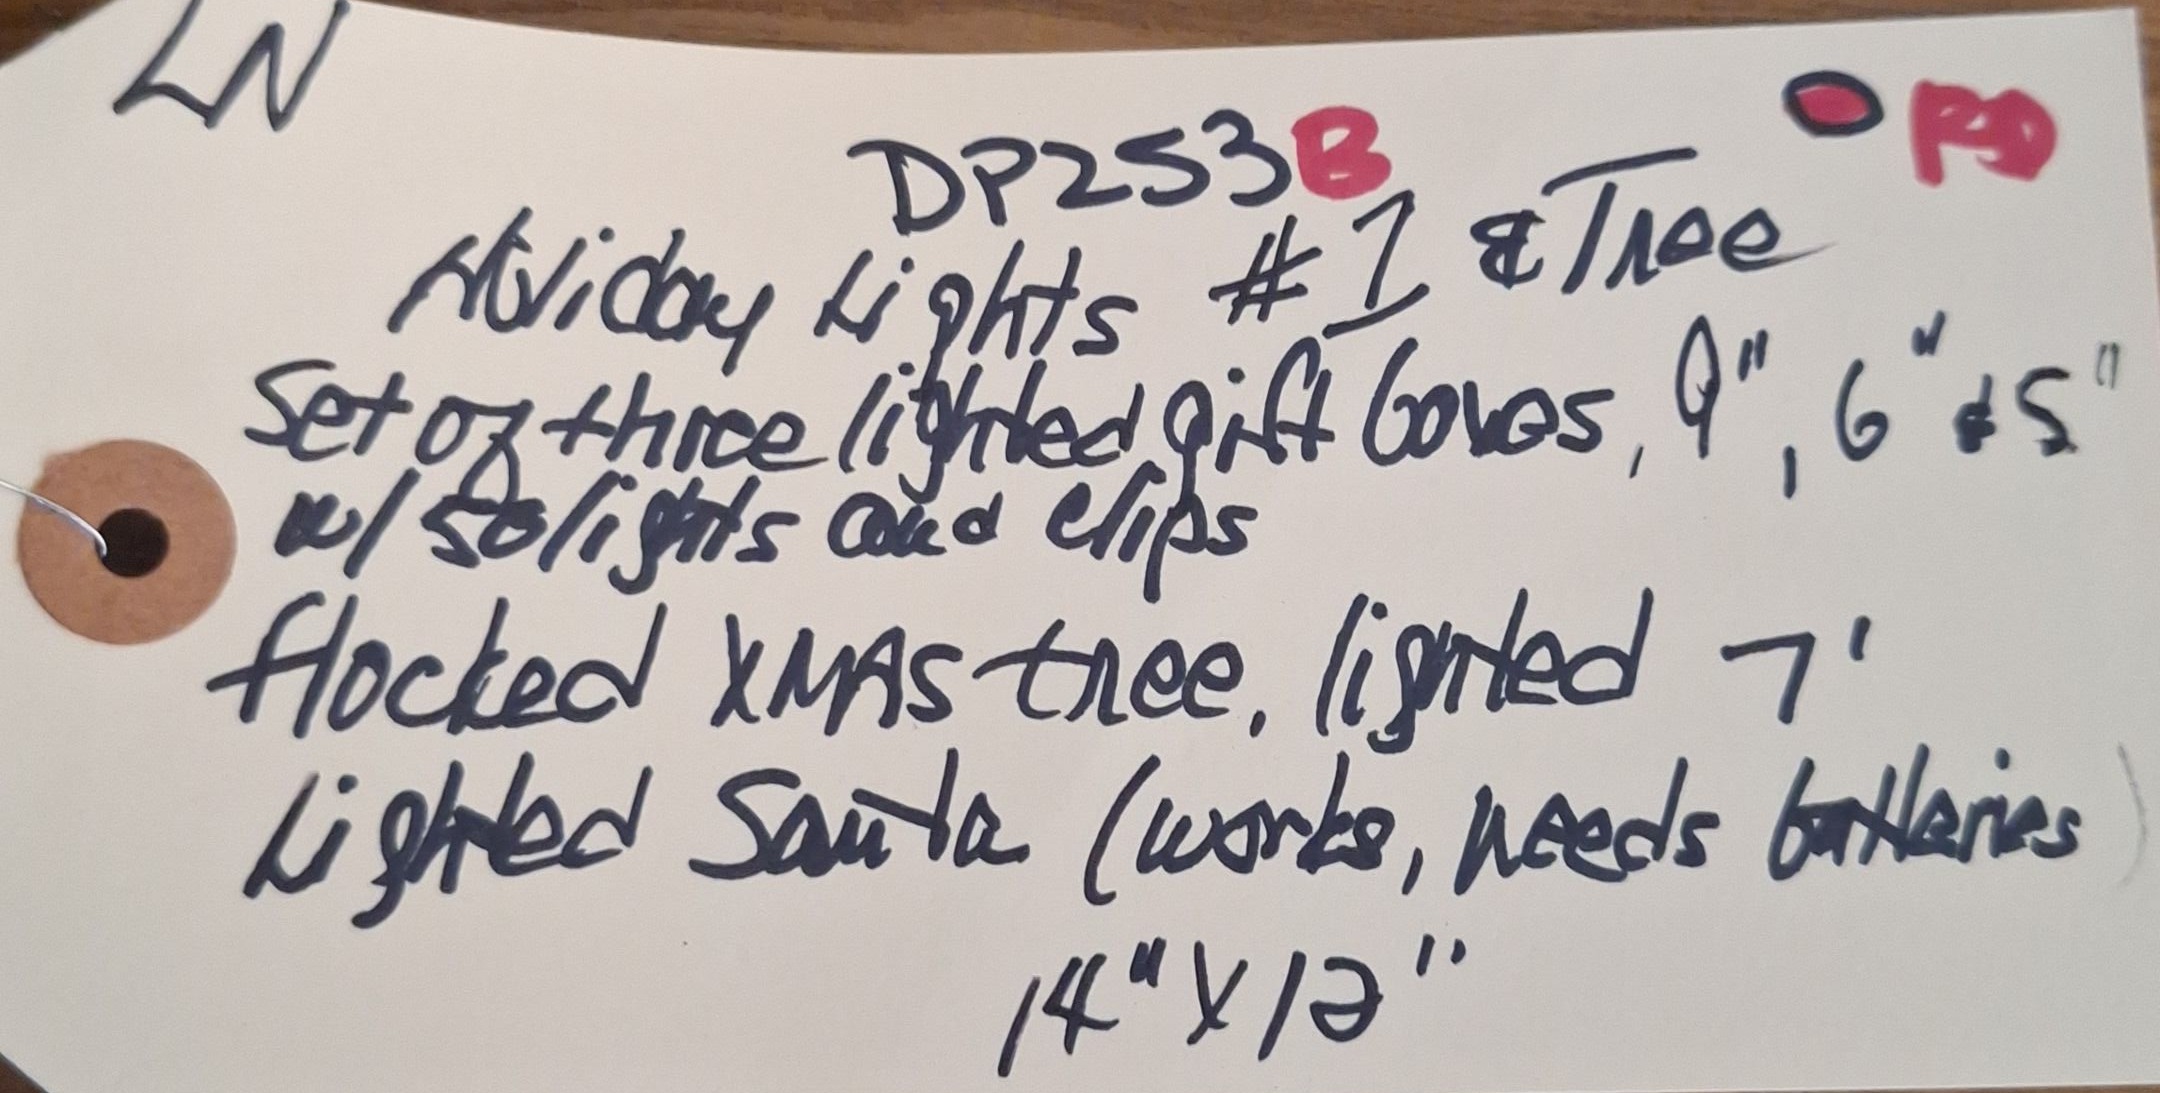 LN
RD
DP253B
Holiday Lights #1 & Tree
Set of three lighted gift boxes, 9", 6" & 5"
w/ 50 lights and clips
flocked XMAS tree, lighted 7'
Lighted Santa (works, needs batteries)
14" X 12"